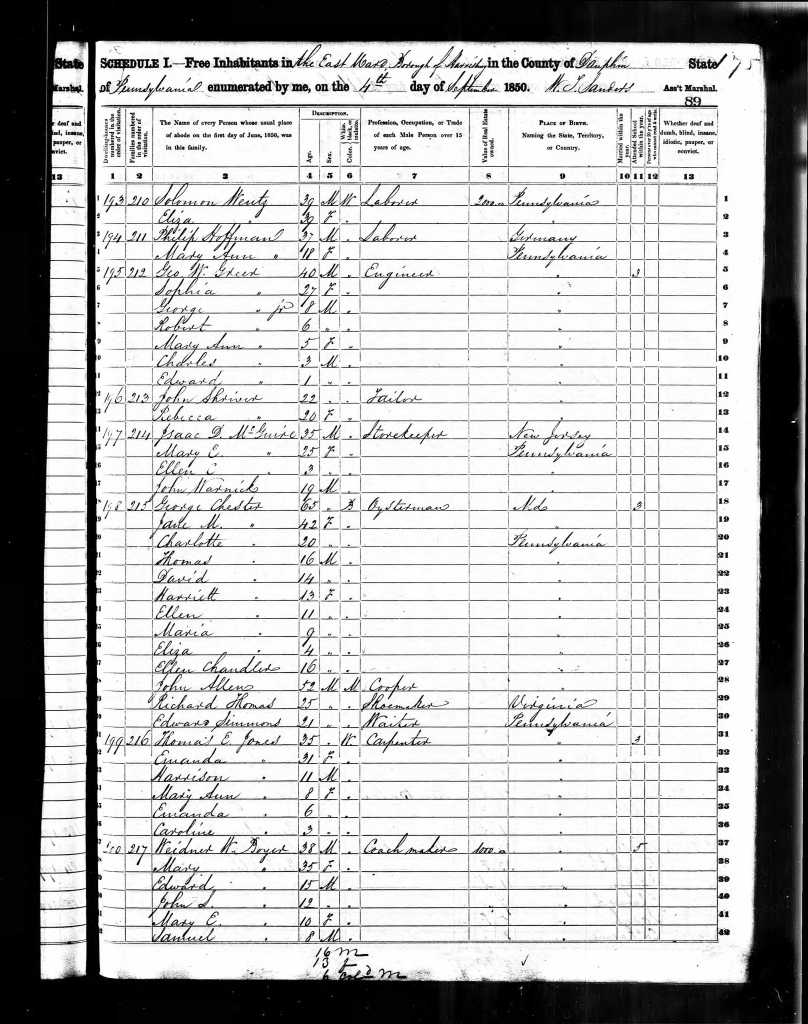 State
Marshal.
13
SCHEDULE I.—Free Inhabitants in the East Ward Borough of in the County of Dauphin State 175
of Pennsylvania enumerated by me, on the 4th day of September 1850. W. T. Sanders Ass't Marshal.
89
Dwelling-houses numbered in the order of visitation. Families numbered in the order of visitation. The Name of every Person whose usual place of abode on the first day of June, 1850, was in this family. DESCRIPTION. Age. Sex. Color. Profession, Occupation, or Trade of each Male Person over 15 years of age. Value of Real Estate owned. PLACE OF BIRTH. Naming the State, Territory, or Country. Married within the year. Attended School within the year. Whether deaf and dumb, blind, insane, idiotic, pauper, or convict.
1 2 3 4 5 6 7 8 9 10 11 12 13
1 193 210 Solomon Wentz 39 M W Laborer 2000 Pennsylvania 1
2 Eliza " 39 F " " 2
3 194 211 Philip Hoffman 37 M " Laborer Germany 3
4 Mary Ann " 18 F " Pennsylvania 4
5 195 212 Geo W. Greer 40 M " Engineer " 3 5
6 Sophia " 27 F " " 6
7 George " jr 8 M " " 7
8 Robert " 6 " " " 8
9 Mary Ann " 5 F " " 9
10 Charles " 3 M " " 10
11 Edward " 1 " " " 11
12 196 213 John Shriver 22 " " Tailor " 12
13 Rebecca " 20 F " " 13
14 197 214 Isaac D. McGuire 35 M " Storekeeper New Jersey 14
15 Mary E. " 25 F " Pennsylvania 15
16 Ellen C " 3 " " " 16
17 John Warnick 19 M " " 17
18 198 215 George Chester 65 " B Oysterman Md 3 18
19 Jane M. " 42 F " " 19
20 Charlotte " 20 " " Pennsylvania 20
21 Thomas " 16 M " " 21
22 David " 14 " " " 22
23 Harriett " 13 F " " 23
24 Ellen " 11 " " " 24
25 Maria " 9 " " " 25
26 Eliza " 4 " " " 26
27 Ellen Chandler 16 " " " 27
28 John Allen 52 M M Cooper " 28
29 Richard Thomas 25 " " Shoemaker Virginia 29
30 Edward Simmons 21 " " Waiter Pennsylvania 30
31 199 216 Thomas E. Jones 35 " W. Carpenter " 3 31
32 Emanda " 31 F " " 32
33 Harrison " 11 M " " 33
34 Mary Ann " 8 F " " 34
35 Emanda " 6 " " " 35
36 Caroline " 3 " " " 36
37 200 217 Weidner W. Boyer 38 M " Coach maker 1000 " 5 37
38 Mary " 35 F " " 38
39 Edward " 15 M " " 39
40 John S. " 12 " " " 40
41 Mary E. " 10 F " " 41
42 Samuel " 8 M " " 42
16 M
13 f
6 Col'd M